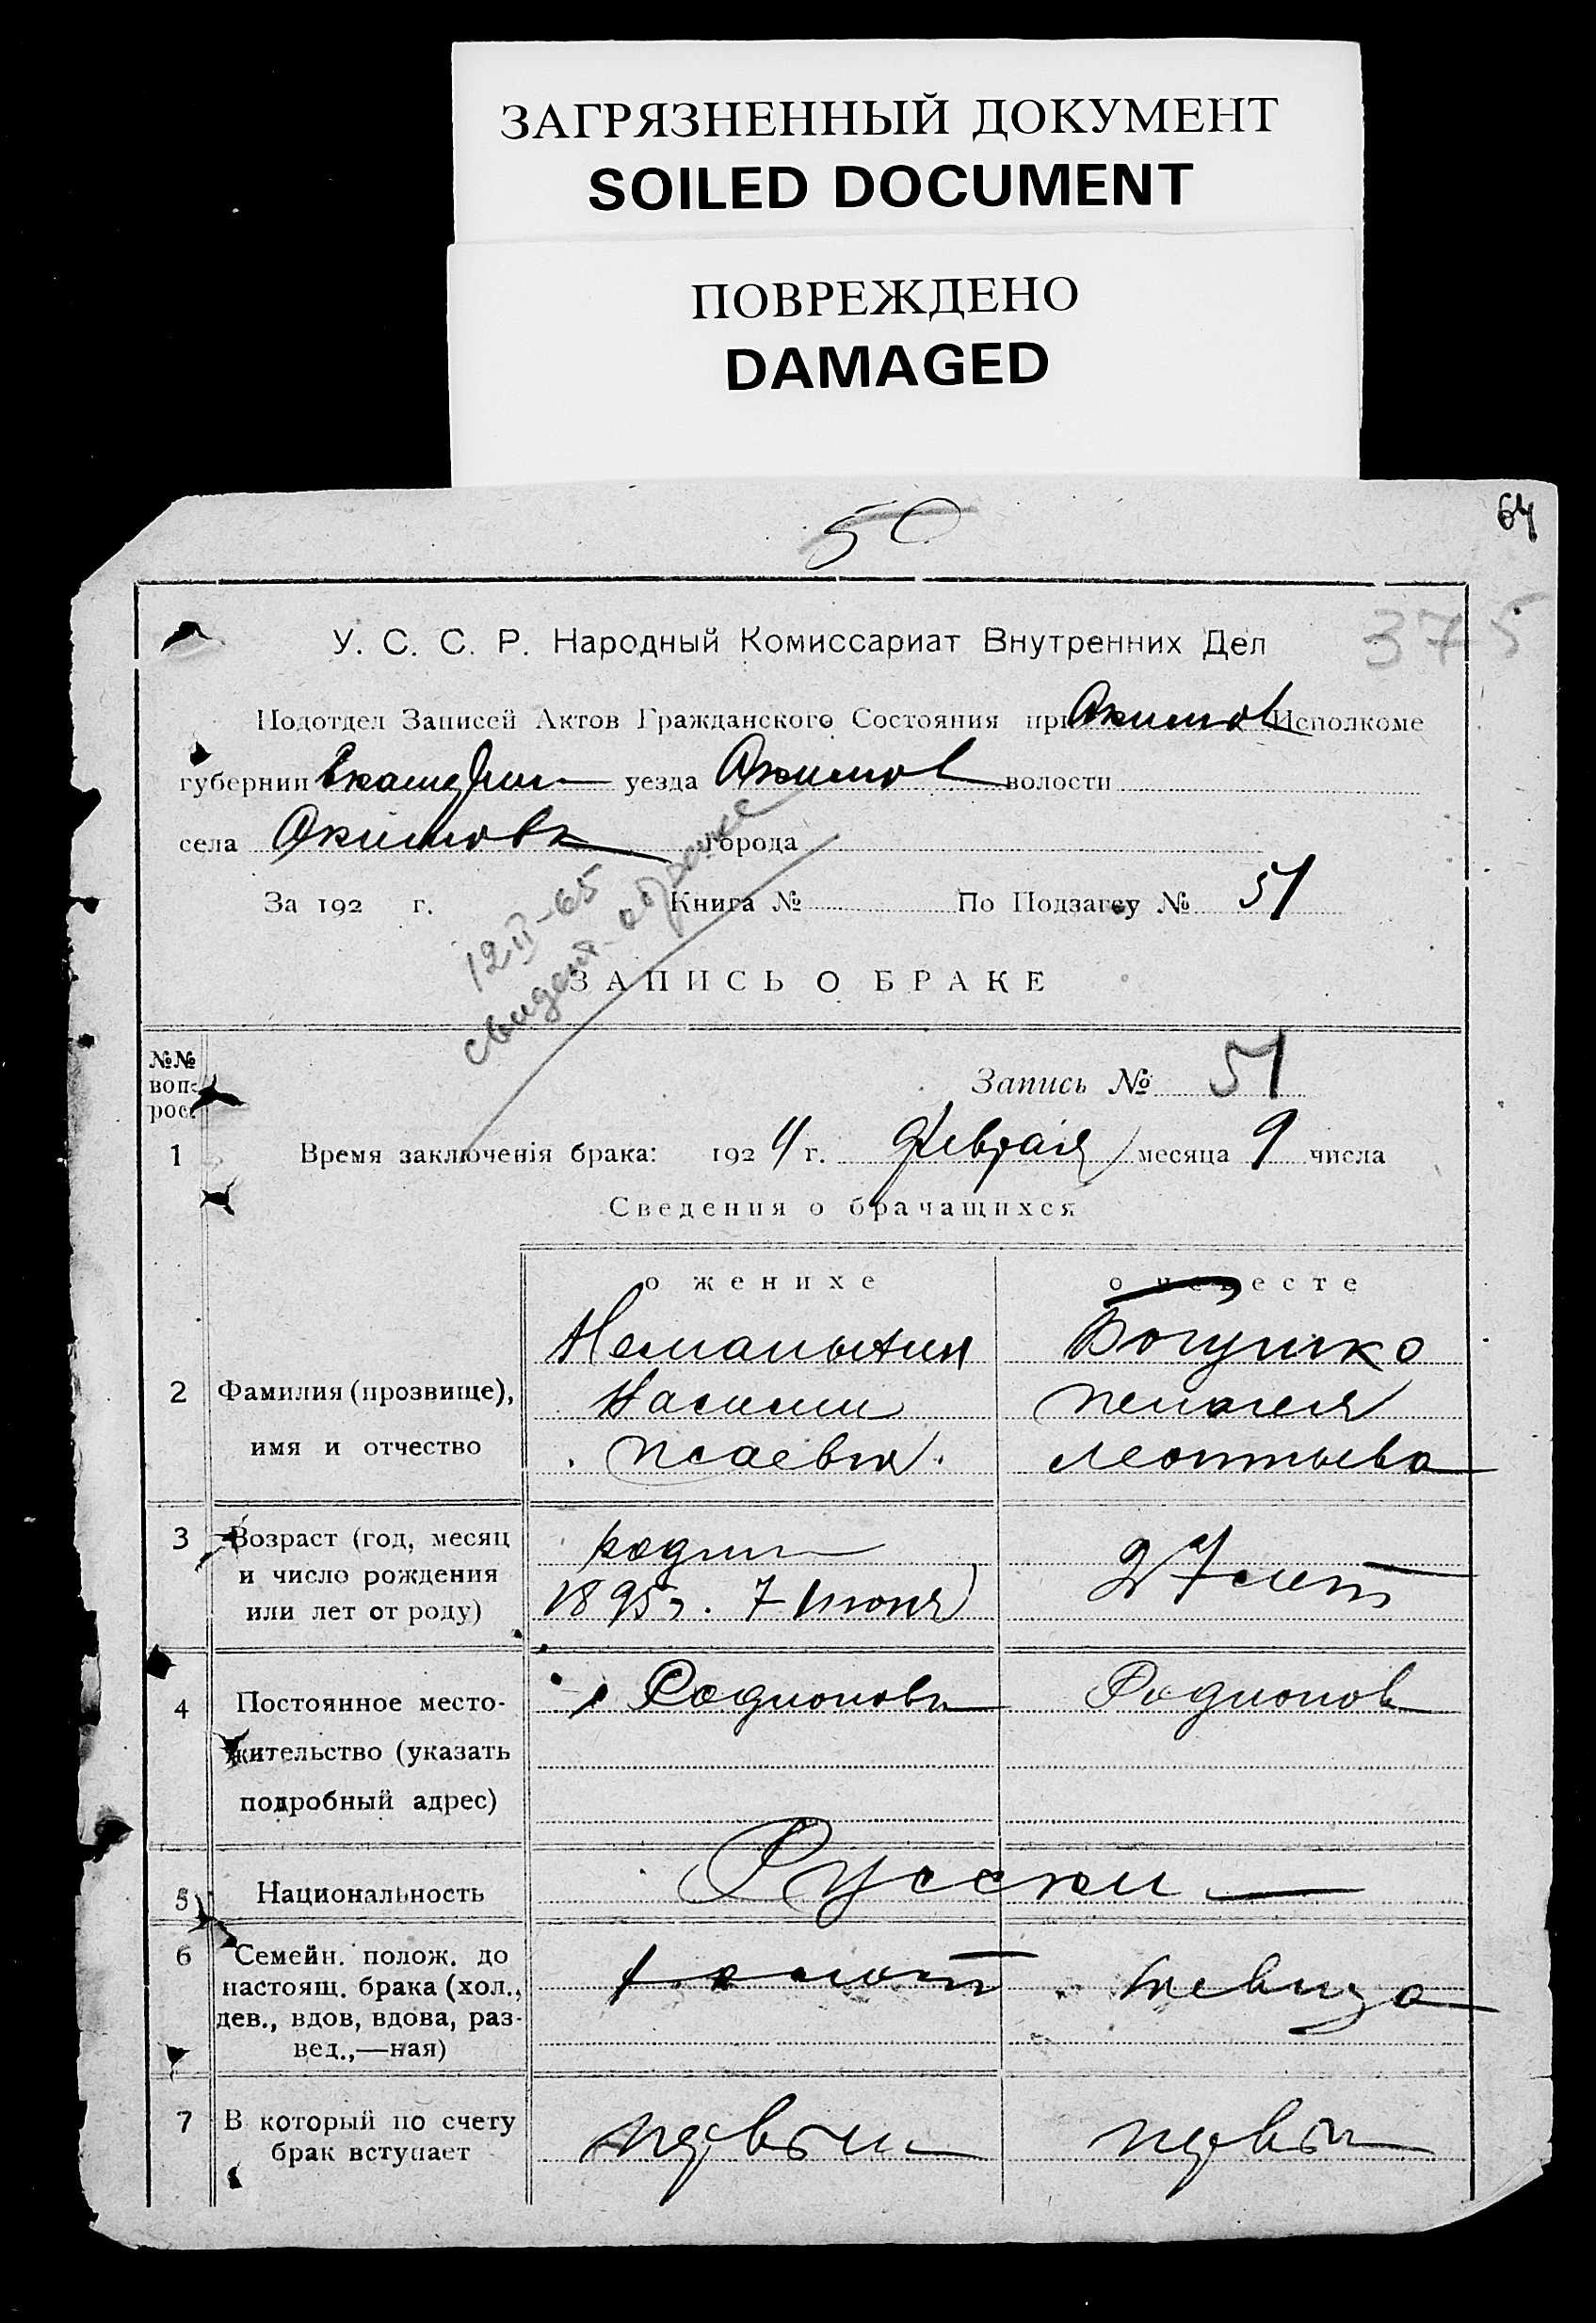 ЗАГРЯЗНЕННЫЙ ДОКУМЕНТ
SOILED DOCUMENT
ПОВРЕЖДЕНО
DAMAGED
50
64
375
У. С. С. Р. Народный Комиссариат Внутренних Дел
Подотдел Записей Актов Гражданского Состояния при Акимов Исполкоме
губернии Екатерин уезда Акимов волости
села Акимовк города
12 II-65
свидет. о браке
За 192 г. Книга № По Подзагсу № 51
ЗАПИСЬ О БРАКЕ
№№ воп- рос.
Запись № 51
1 Время заключенія брака: 1924 г. февраля месяца 9 числа
Сведения о брачащихся
о женихе о невесте
Богушко
2 Фамилия (прозвище), Пелагея
имя и отчество Исаевич Леонтьева
3 Возраст (год, месяц родил
и число рождения 27 лет
или лет от роду) 1895 г. 7 Июня
4 Постоянное место- Родионовк Родионов
жительство (указать
подробный адрес)
5 Национальность Русски
6 Семейн. полож. до холост девица
настоящ. брака (хол.,
дев., вдов, вдова, раз-
вед.,—ная)
7 В который по счету первый первы
брак вступает